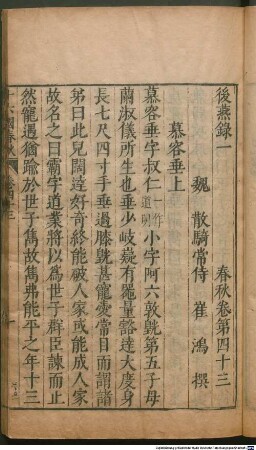 後燕錄一
春秋卷第四十三
魏 散騎常侍 崔 鴻 撰
慕容垂上
慕容垂字叔仁一作道明小字阿六敦皝第五子母
蘭淑儀所生也垂少岐嶷有器量豁達大度身
長七尺四寸手垂過膝皝甚寵愛常目而謂諸
弟曰此兒闊達好奇終能破人家或能成人家
故名之曰霸字道業將以爲世子群臣諫而止
然寵遇猶踰於世子雋故雋弗能平之年十三